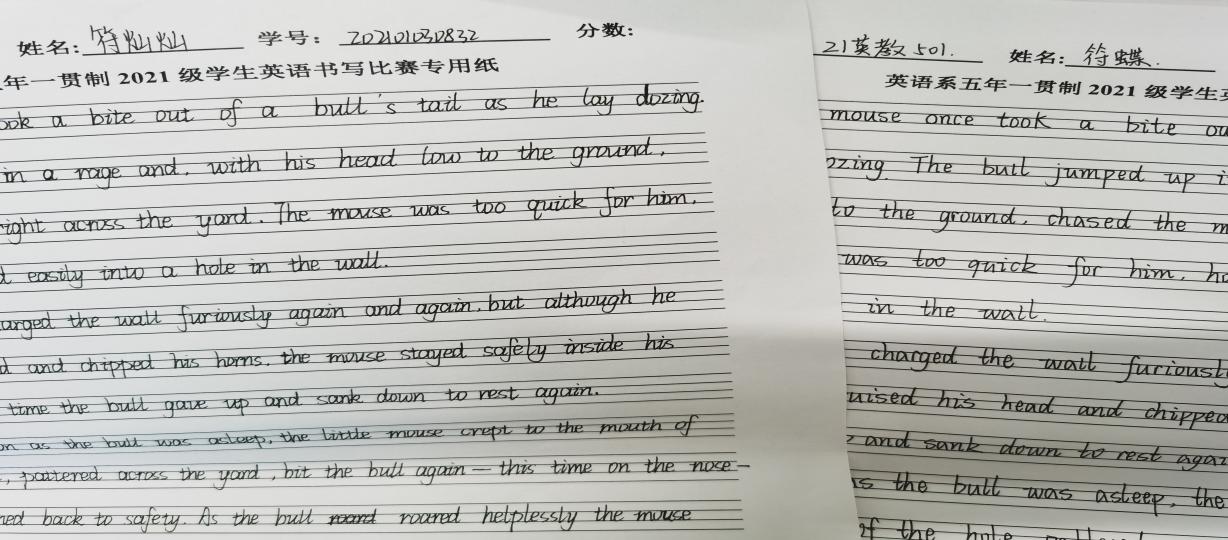 姓名: 符灿灿 学号: 202101030832 分数:
年一贯制 2021 级学生英语书写比赛专用纸
ook a bite out of a bull's tail as he lay dozing.
in a rage and, with his head low to the ground,
right across the yard. The mouse was too quick for him,
d easily into a hole in the wall.
arged the wall furiously again and again, but although he
d and chipped his horns, the mouse stayed safely inside his
time the bull gave up and sank down to rest again.
on as the bull was asleep, the little mouse crept to the mouth of
, pattered across the yard, bit the bull again — this time on the nose —
ned back to safety. As the bull roared helplessly the mouse
21英教501. 姓名: 符蝶.
英语系五年一贯制 2021 级学生英
mouse once took a bite ou
ozing. The bull jumped up i
to the ground, chased the m
was too quick for him, ho
in the wall.
charged the wall furiously
uised his head and chipped
e and sank down to rest agai
as the bull was asleep, the
of the hole